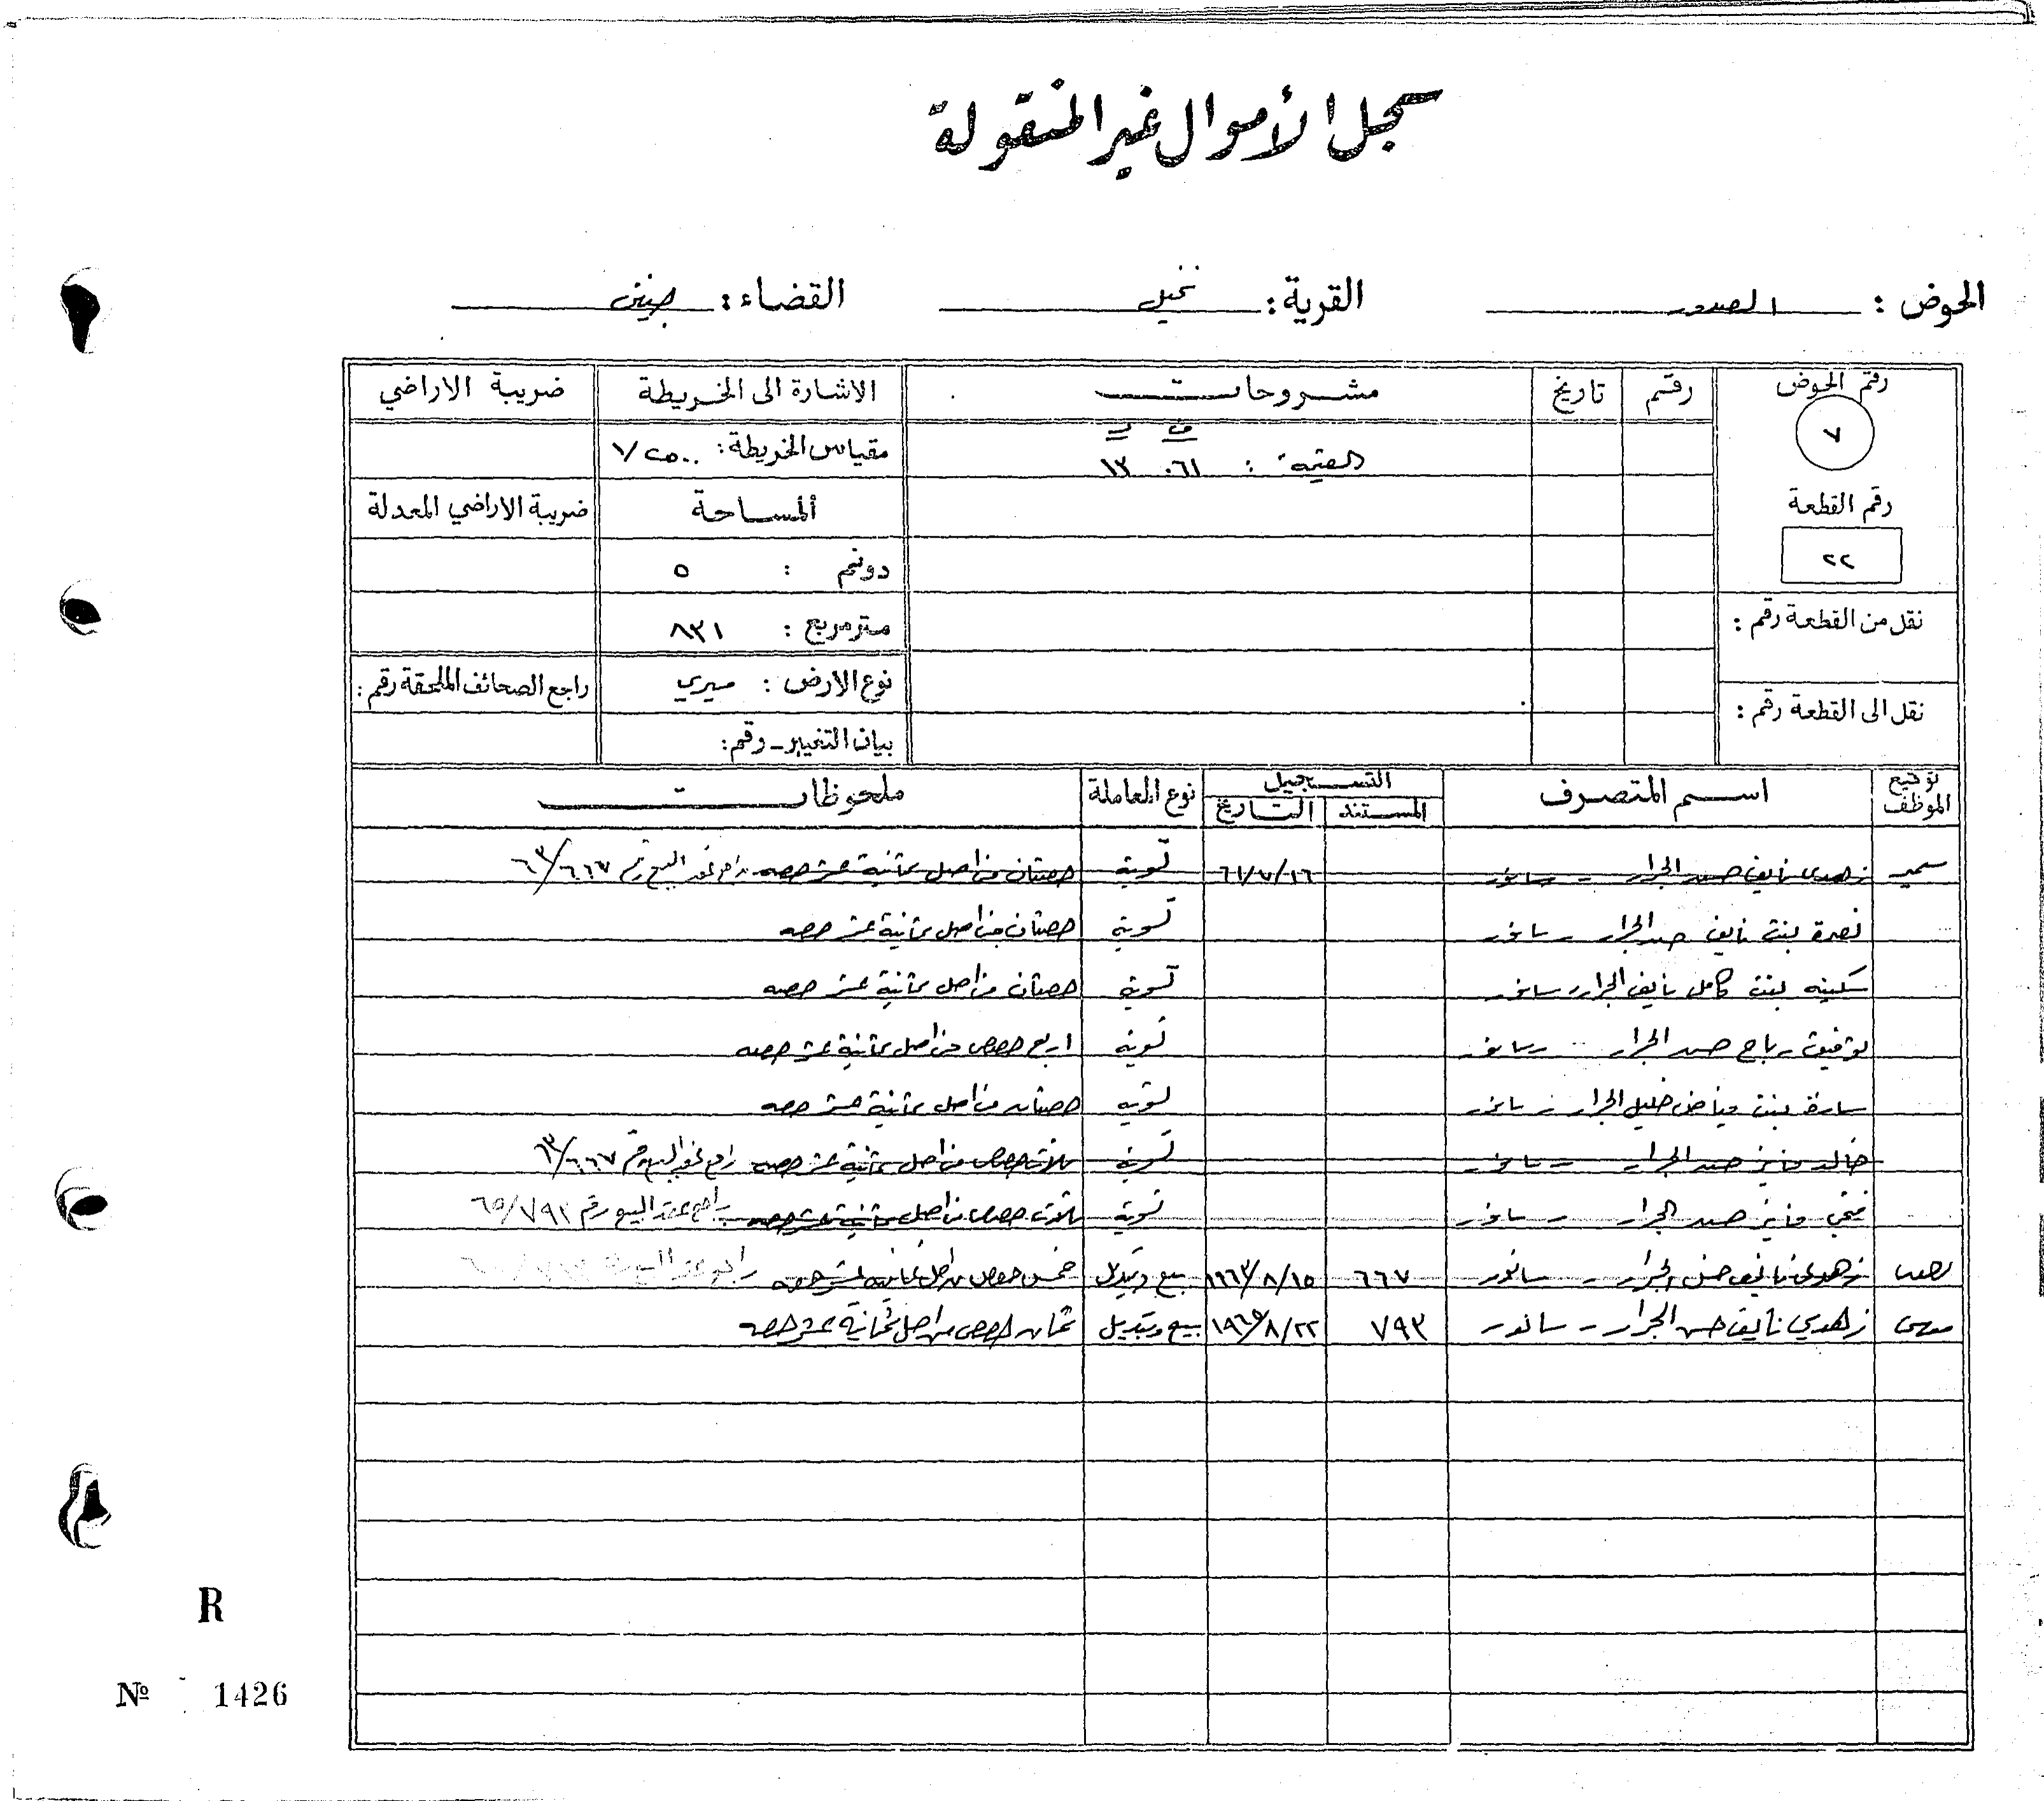 سجل الأموال غير المنقولة
الحوض : الصدور القرية : نخيل القضاء : جنين
رقم الحوض رقم تاريخ مشروحات الاشارة الى الخريطة ضريبة الاراضي
٧ القيمة : ٠٦١ ١٣ مقياس الخريطة : ١/٢٥٠٠
رقم القطعة المساحة ضريبة الاراضي المعدلة
٢٢ دونم : ٥
نقل من القطعة رقم : متر مربع : ٨٣١
نوع الارض : ميري راجع الصحائف الملحقة رقم :
نقل الى القطعة رقم : بيان التغيير - رقم :
توقيع الموظف اسم المتصرف التسجيل المستند التاريخ نوع المعاملة ملحوظات
سمير زهدي نايف حسن الجرار - سانور ٦١/٧/١٦ تسوية حصتان من اصل ثمانية عشر حصه راجع عقد البيع رقم ٦٣/٦٦٧
نصرة بنت نايف حسن الجرار - سانور تسوية حصتان من اصل ثمانية عشر حصه
سكينه بنت كامل نايف الجرار - سانور تسوية حصتان من اصل ثمانية عشر حصه
توفيق رباح حسن الجرار - سانور تسوية اربع حصص من اصل ثمانية عشر حصه
سارة بنت فياض خليل الجرار - سانور تسوية حصتان من اصل ثمانية عشر حصه
خالد فايز حسن الجرار - سانور تسوية ثلاث حصص من اصل ثمانية عشر حصه راجع عقد البيع رقم ٦٣/٦٦٧
فتحي فايز حسن الجرار - سانور تسوية ثلاث حصص من اصل ثمانية عشر حصه راجع عقد البيع رقم ٦٥/٧٩٣
زهدي نايف حسن الجرار - سانور ٦٦٧ ١٩٦٣/٨/١٥ بيع وتبديل خمس حصص من اصل ثمانية عشر حصه راجع عقد البيع
زهدي نايف حسن الجرار - سانور ٧٩٣ ١٩٦٥/٨/٢٢ بيع وتبديل ثمان حصص من اصل ثمانية عشر حصه
R
№ 1426